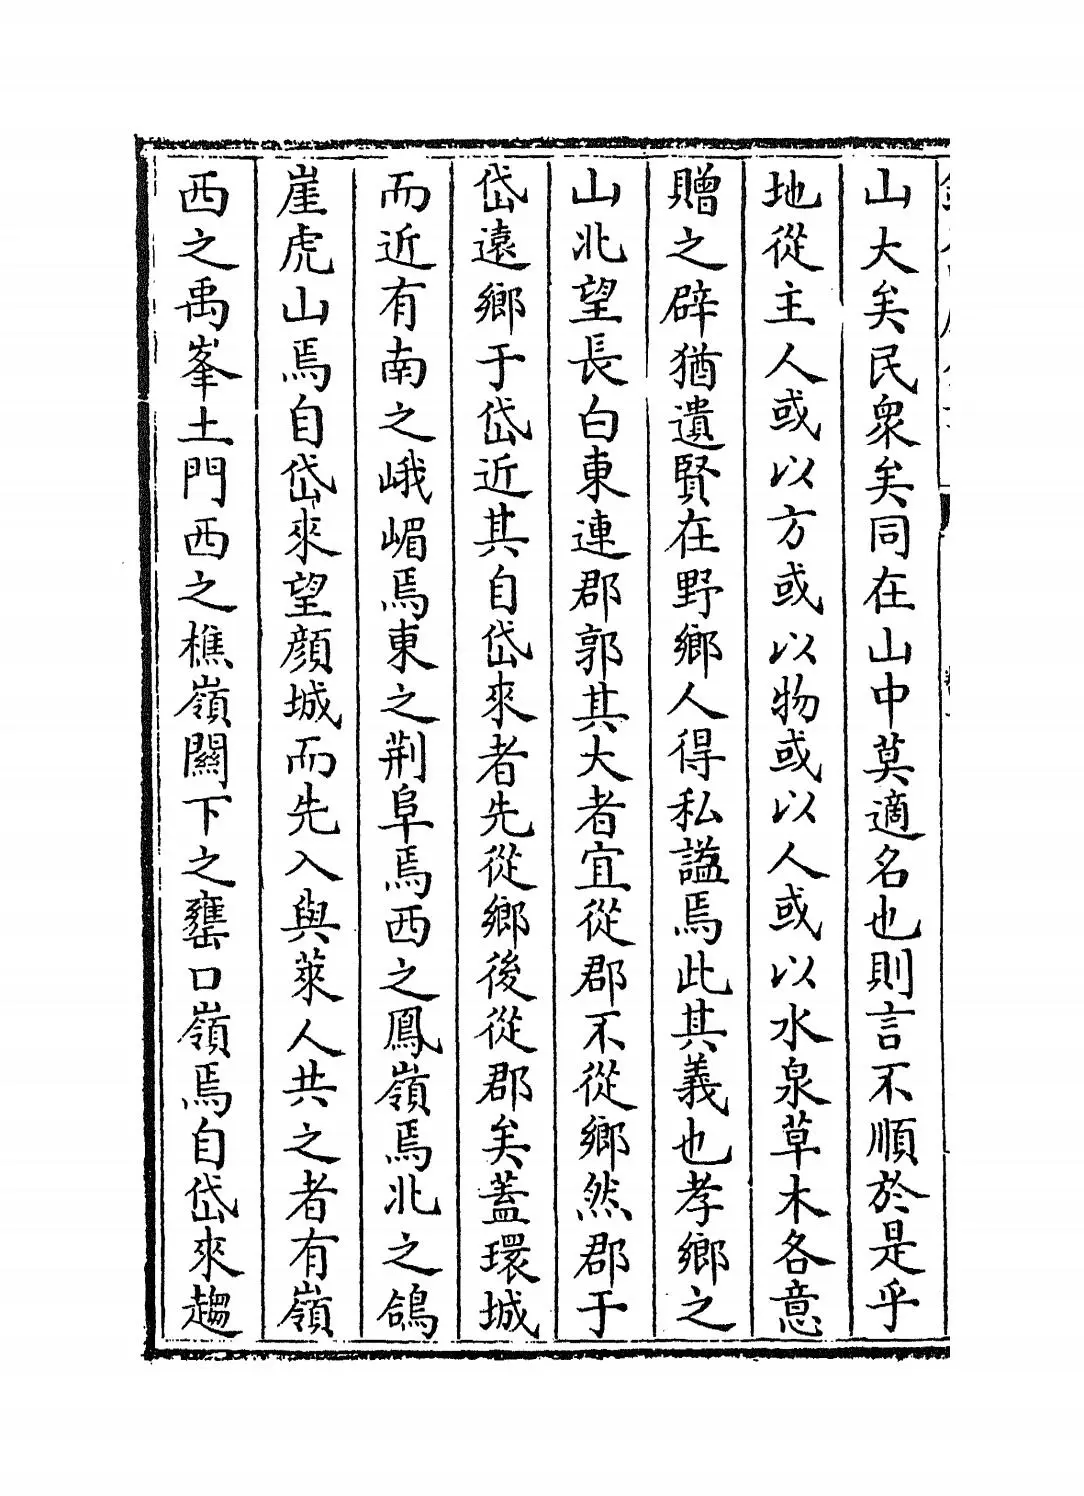 山大矣民衆矣同在山中莫適名也則言不順於是乎
地從主人或以方或以物或以人或以水泉草木各意
贈之辟猶遺賢在野鄉人得私諡焉此其義也孝鄉之
山北望長白東連郡郭其大者宜從郡不從鄉然郡于
岱遠鄉于岱近其自岱來者先從鄉後從郡矣蓋環城
而近有南之峨嵋焉東之荆阜焉西之鳳嶺焉北之鴿
崖虎山焉自岱來望顔城而先入與萊人共之者有嶺
西之禹峯土門西之樵嶺闗下之甕口嶺焉自岱來趨